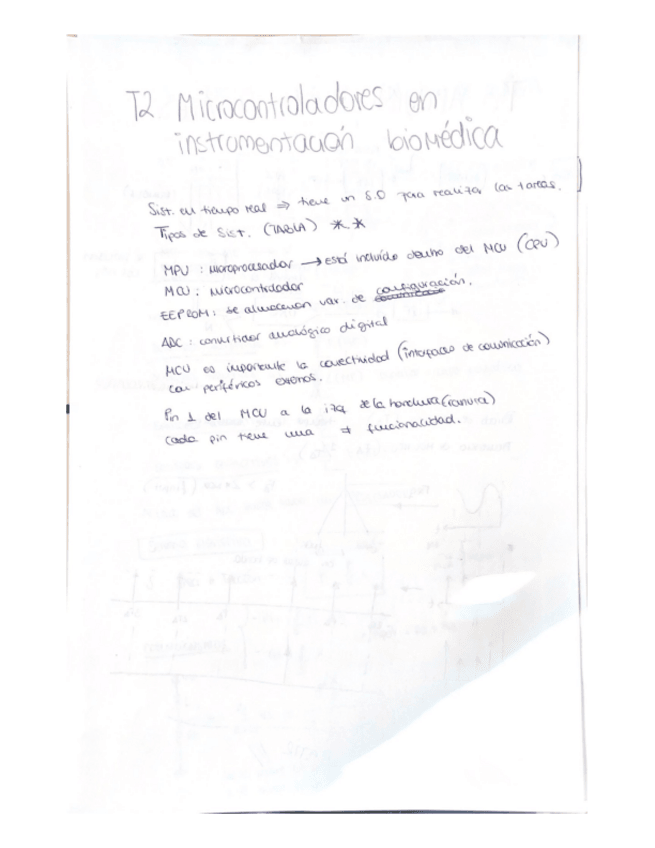 T2 Microcontroladores en
instrumentación biomédica
Sist. en tiempo real ⇒ tiene un S.O para realizar las tareas.
Tipos de Sist. (TABLA) * *
MPU : microprocesador → está incluído dentro del MCU (CPU)
MCU : microcontrolador
EEPROM : se almacenan var. de configuración.
ADC : convertidor analógico digital
MCU es importante la conectividad (interfaces de comunicación)
con periféricos externos.
Pin 1 del MCU a la izq de la hendidura (ranura)
cada pin tiene una ≠ funcionalidad.